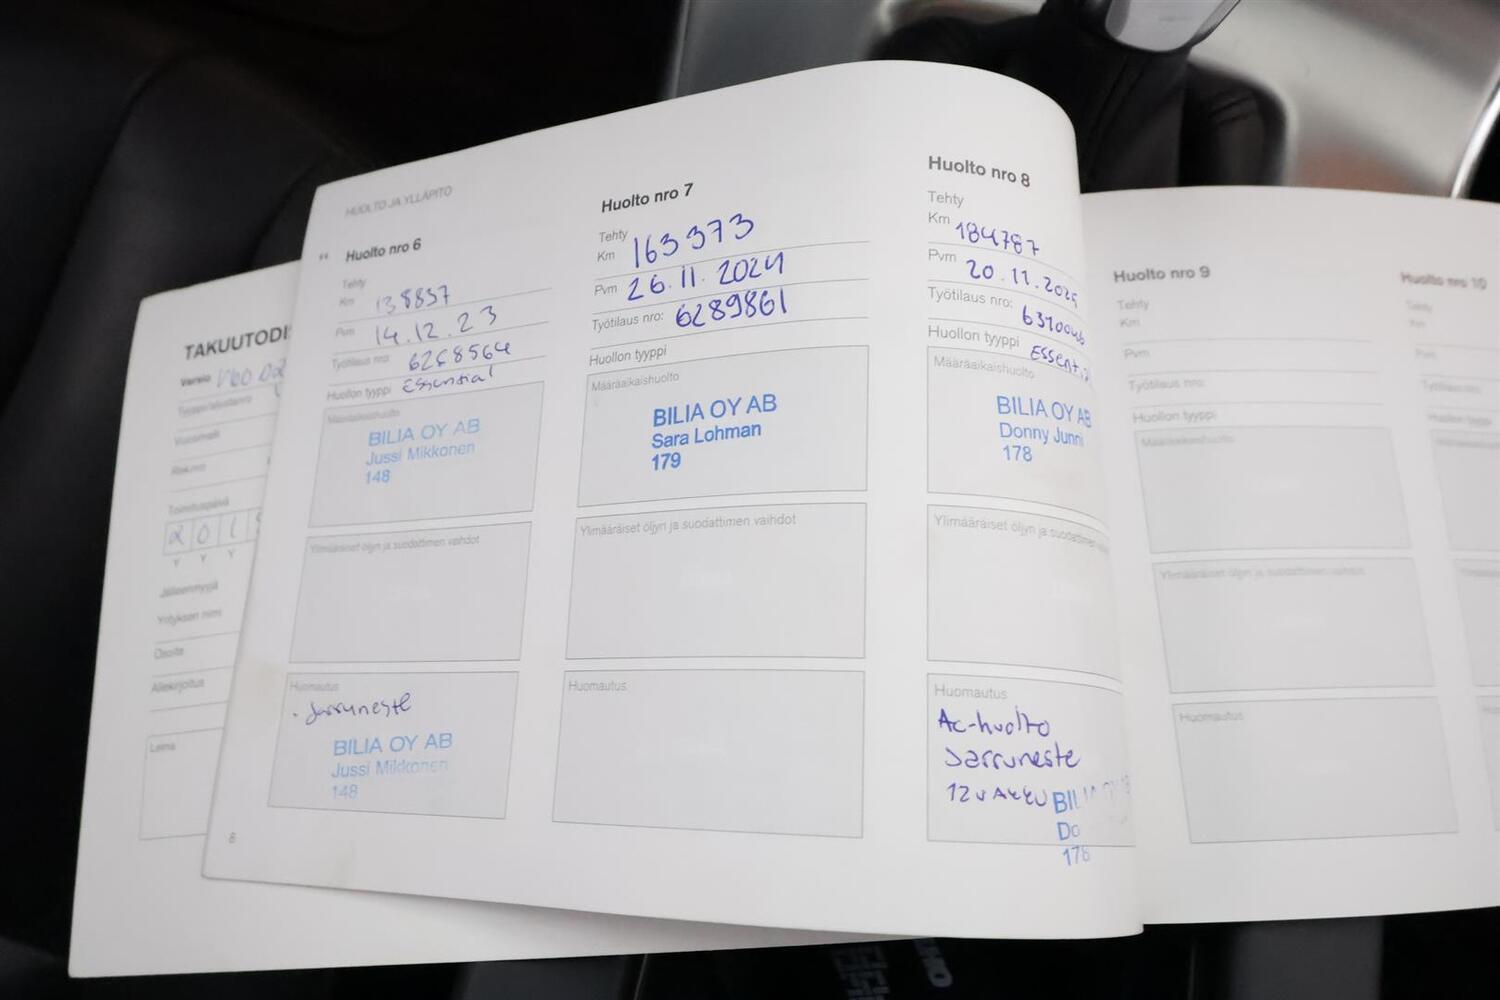 TAKUUTODI
Versio V60 D2
Tyyppi/alustanro
Vuosimalli
Rek.nro
Toimituspäivä
2 0 1
Y Y Y
Jälleenmyyjä
Yrityksen nimi
Osoite
Allekirjoitus
Leima
HUOLTO JA YLLÄPITO
Huolto nro 6
Tehty
Km 138857
Pvm 14.12.23
Työtilaus nro: 6268564
Huollon tyyppi Essential
Määräaikaishuolto
BILIA OY AB
Jussi Mikkonen
148
Ylimääräiset öljyn ja suodattimen vaihdot
Huomautus
- Jarruneste
BILIA OY AB
Jussi Mikkonen
148
8
Huolto nro 7
Tehty
Km 163373
Pvm 26.11.2024
Työtilaus nro: 6289861
Huollon tyyppi
Määräaikaishuolto
BILIA OY AB
Sara Lohman
179
Ylimääräiset öljyn ja suodattimen vaihdot
Huomautus
Huolto nro 8
Tehty
Km 184787
Pvm 20.11.2025
Työtilaus nro:
Huollon tyyppi Essential
Määräaikaishuolto
BILIA OY AB
Donny Junni
178
Ylimääräiset öljyn ja suodattimen
Huomautus
Ac-huolto
Jarruneste
12v Akku
BIL
Do
178
Huolto nro 9
Tehty
Km
Pvm
Työtilaus nro:
Huollon tyyppi
Määräaikaishuolto
Ylimääräiset öljyn ja suodattimen vaihdot
Huomautus
Huolto nro 10
Tehty
Km
Pvm
Työtilaus nro:
Huollon tyyppi